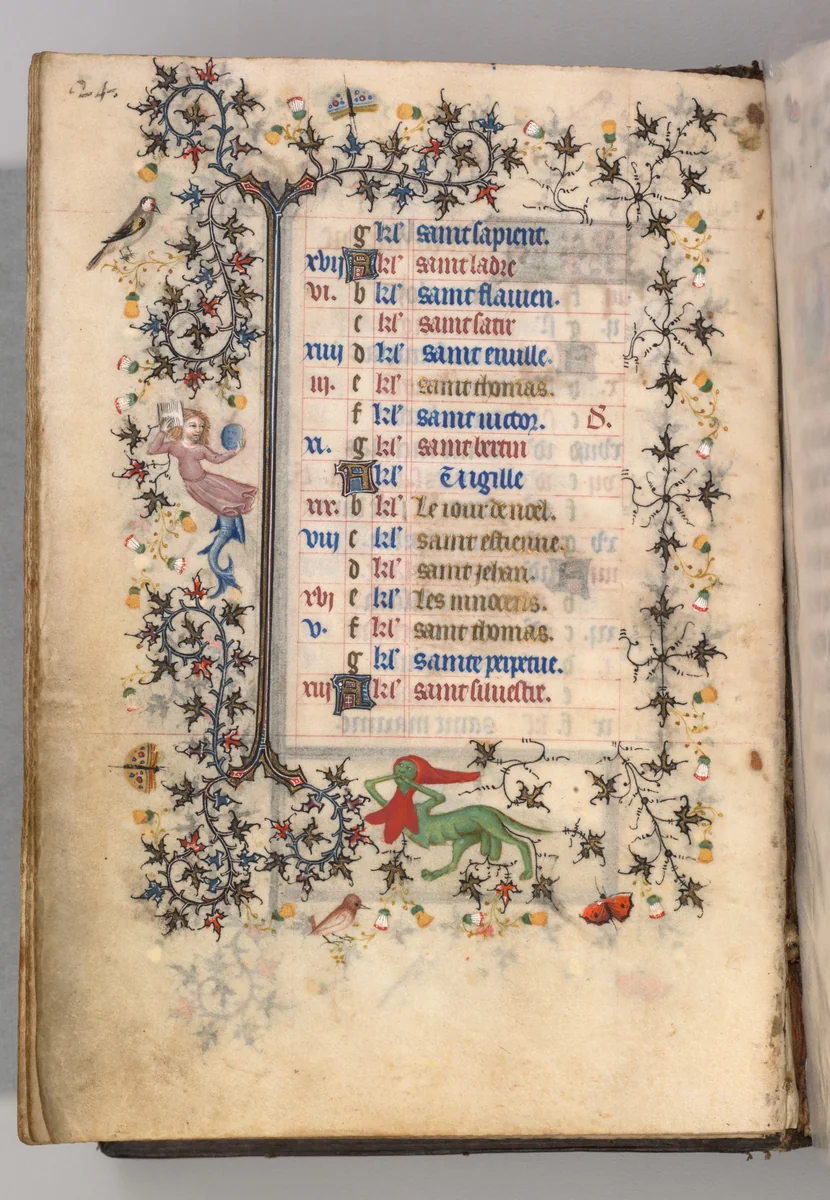 24.
g kl' saint sapient.
xvij A kl' saint ladre
vi. b kl' saint flauien.
c kl' saint satir
xiiij d kl' saint euille.
iij. e kl' saint thomas.
f kl' saint uictor. d.
xi. g kl' saint bertin
A kl' Uigille
xix. b kl' Le iour de noel.
viij c kl' saint estienne.
d kl' saint jehan.
xvj e kl' Les innocens.
v. f kl' saint thomas.
g kl' sainte perpetue.
xiij A kl' saint siluestre.